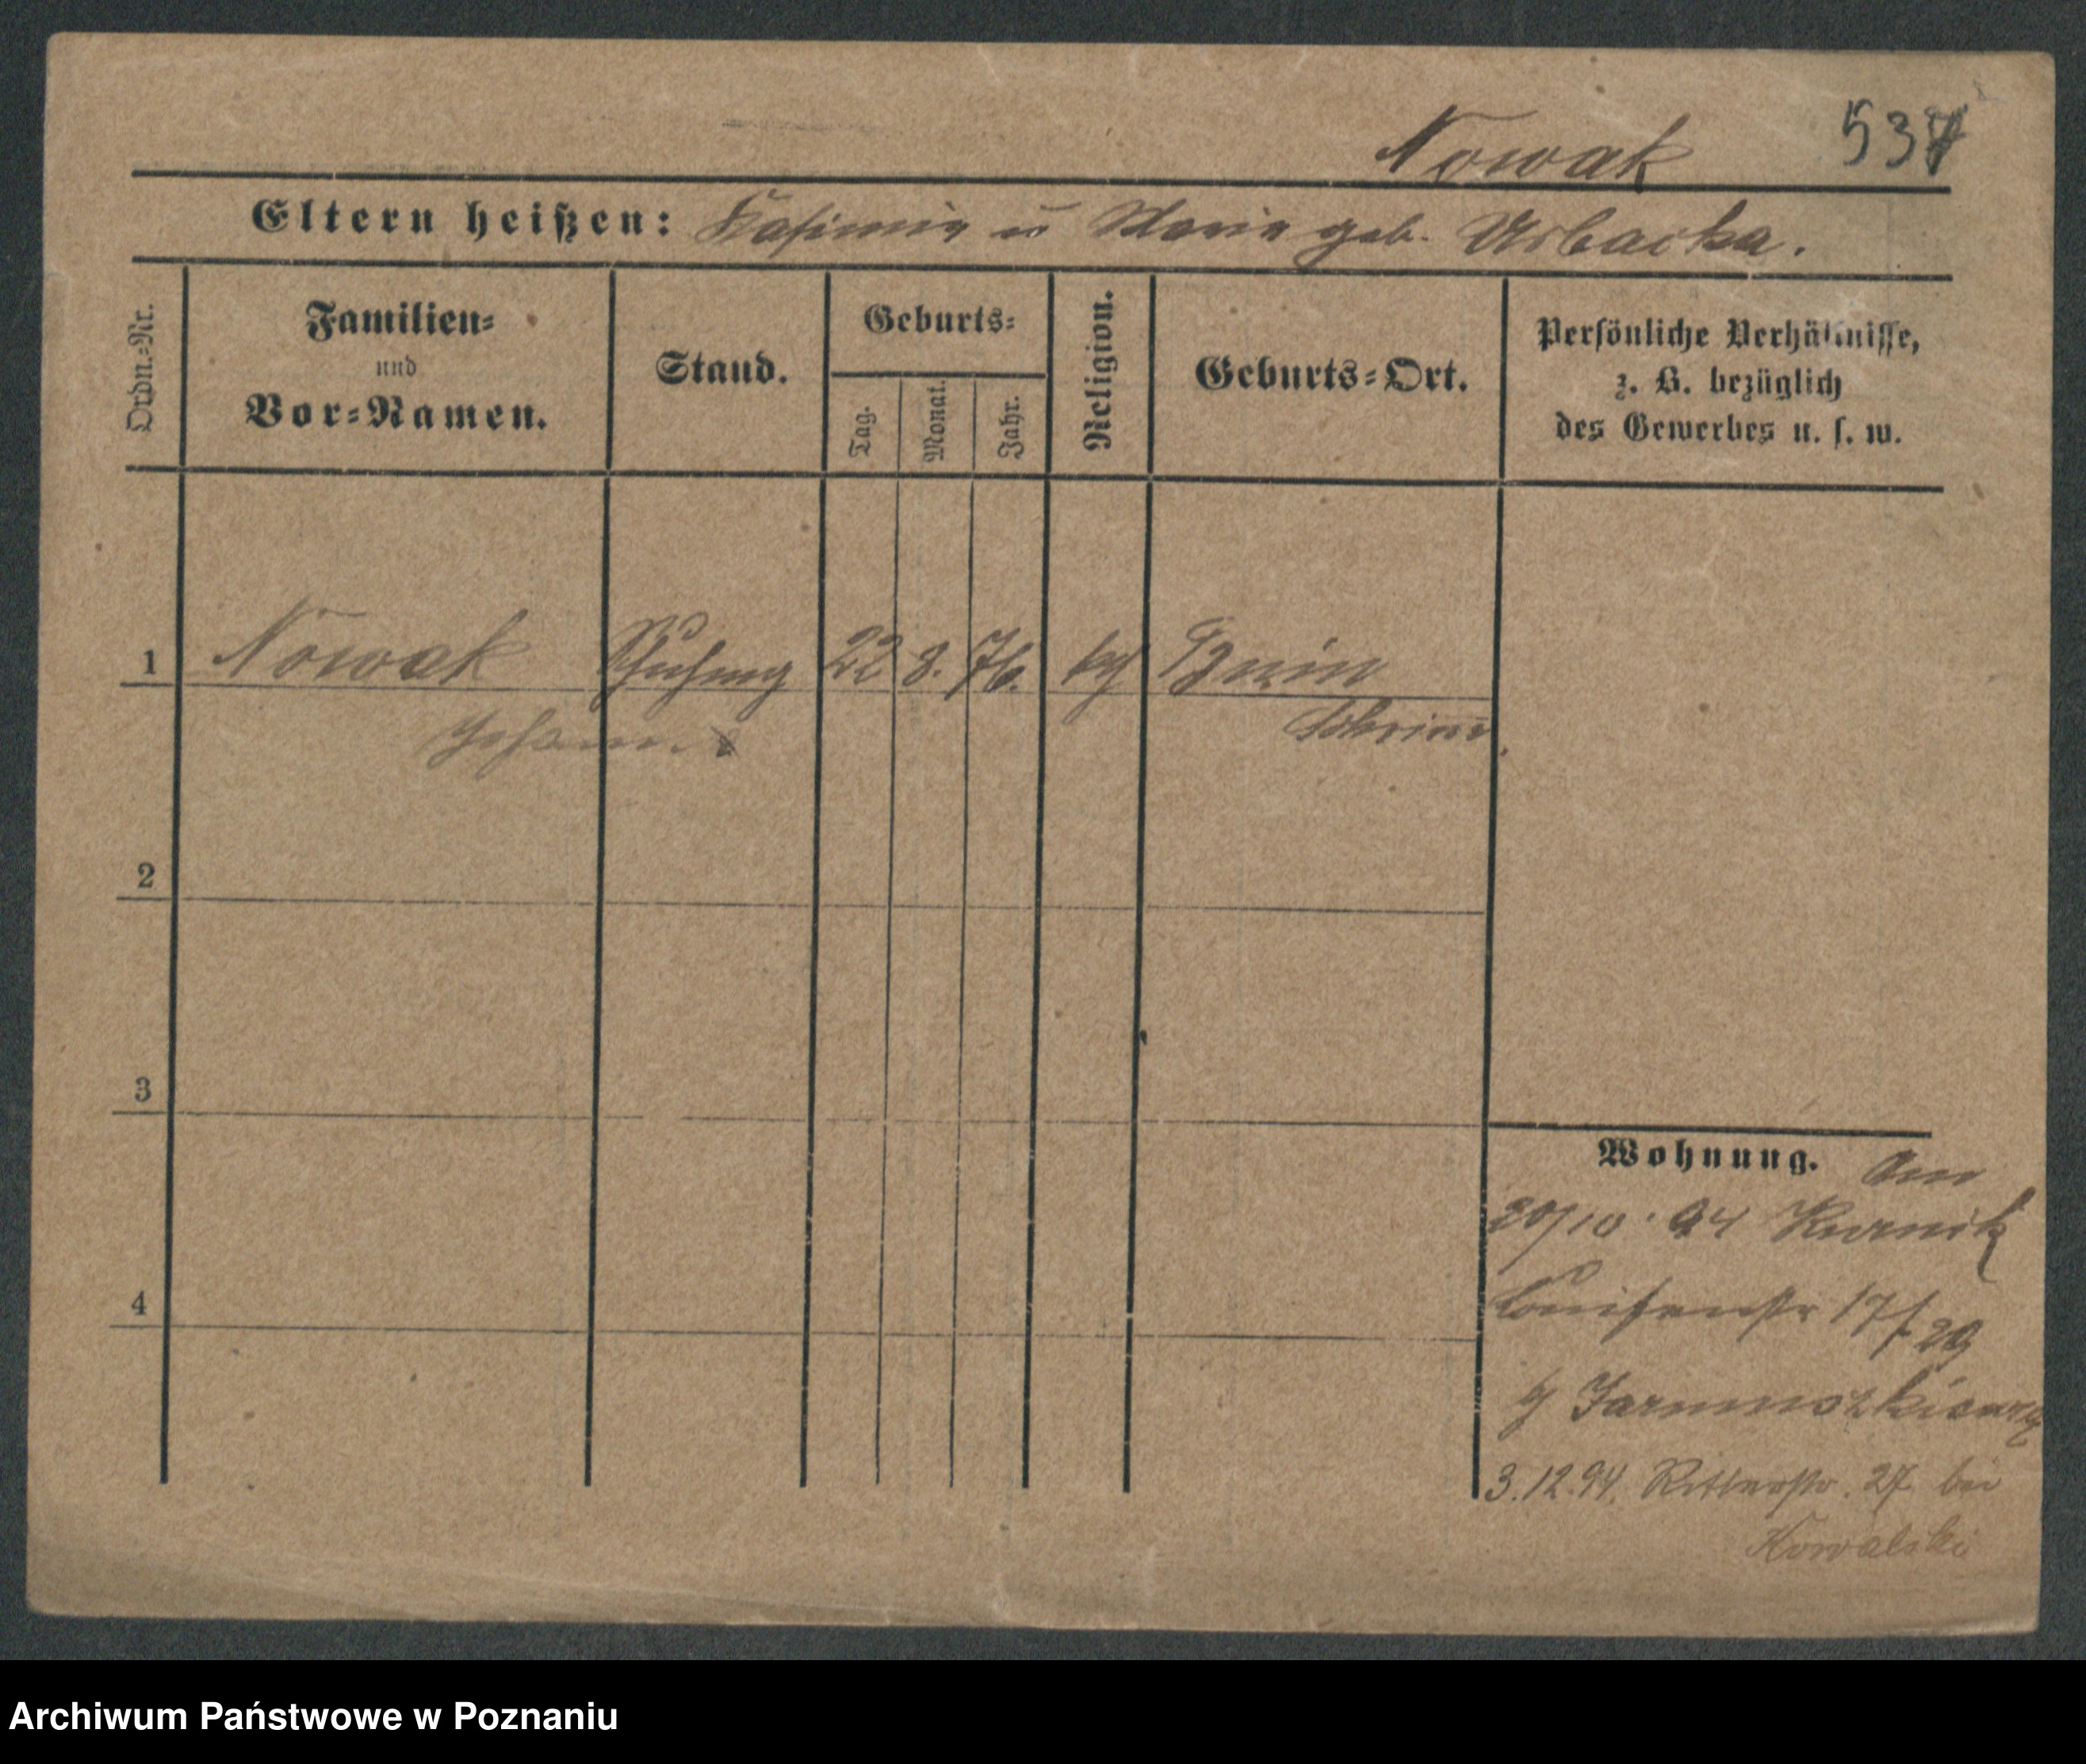 Nowak 537
Eltern heißen: Kasimir u Marie geb. Urbacka.
Ordn.-Nr.
Familien=
und
Vor=Namen.
Stand.
Geburts=
Tag.
Monat.
Jahr.
Religion.
Geburts=Ort.
Persönliche Verhältnisse,
z. B. bezüglich
des Gewerbes u. s. w.
1 Nowak 22 8. 76. kath Bnin
Johann. Schrimm.
2
3
4
Wohnung. Am
20/10. 94 Kurnik
Louisenstr 17/
3.12.94. Ritterstr. 27 bei
Kowalski
Archiwum Państwowe w Poznaniu